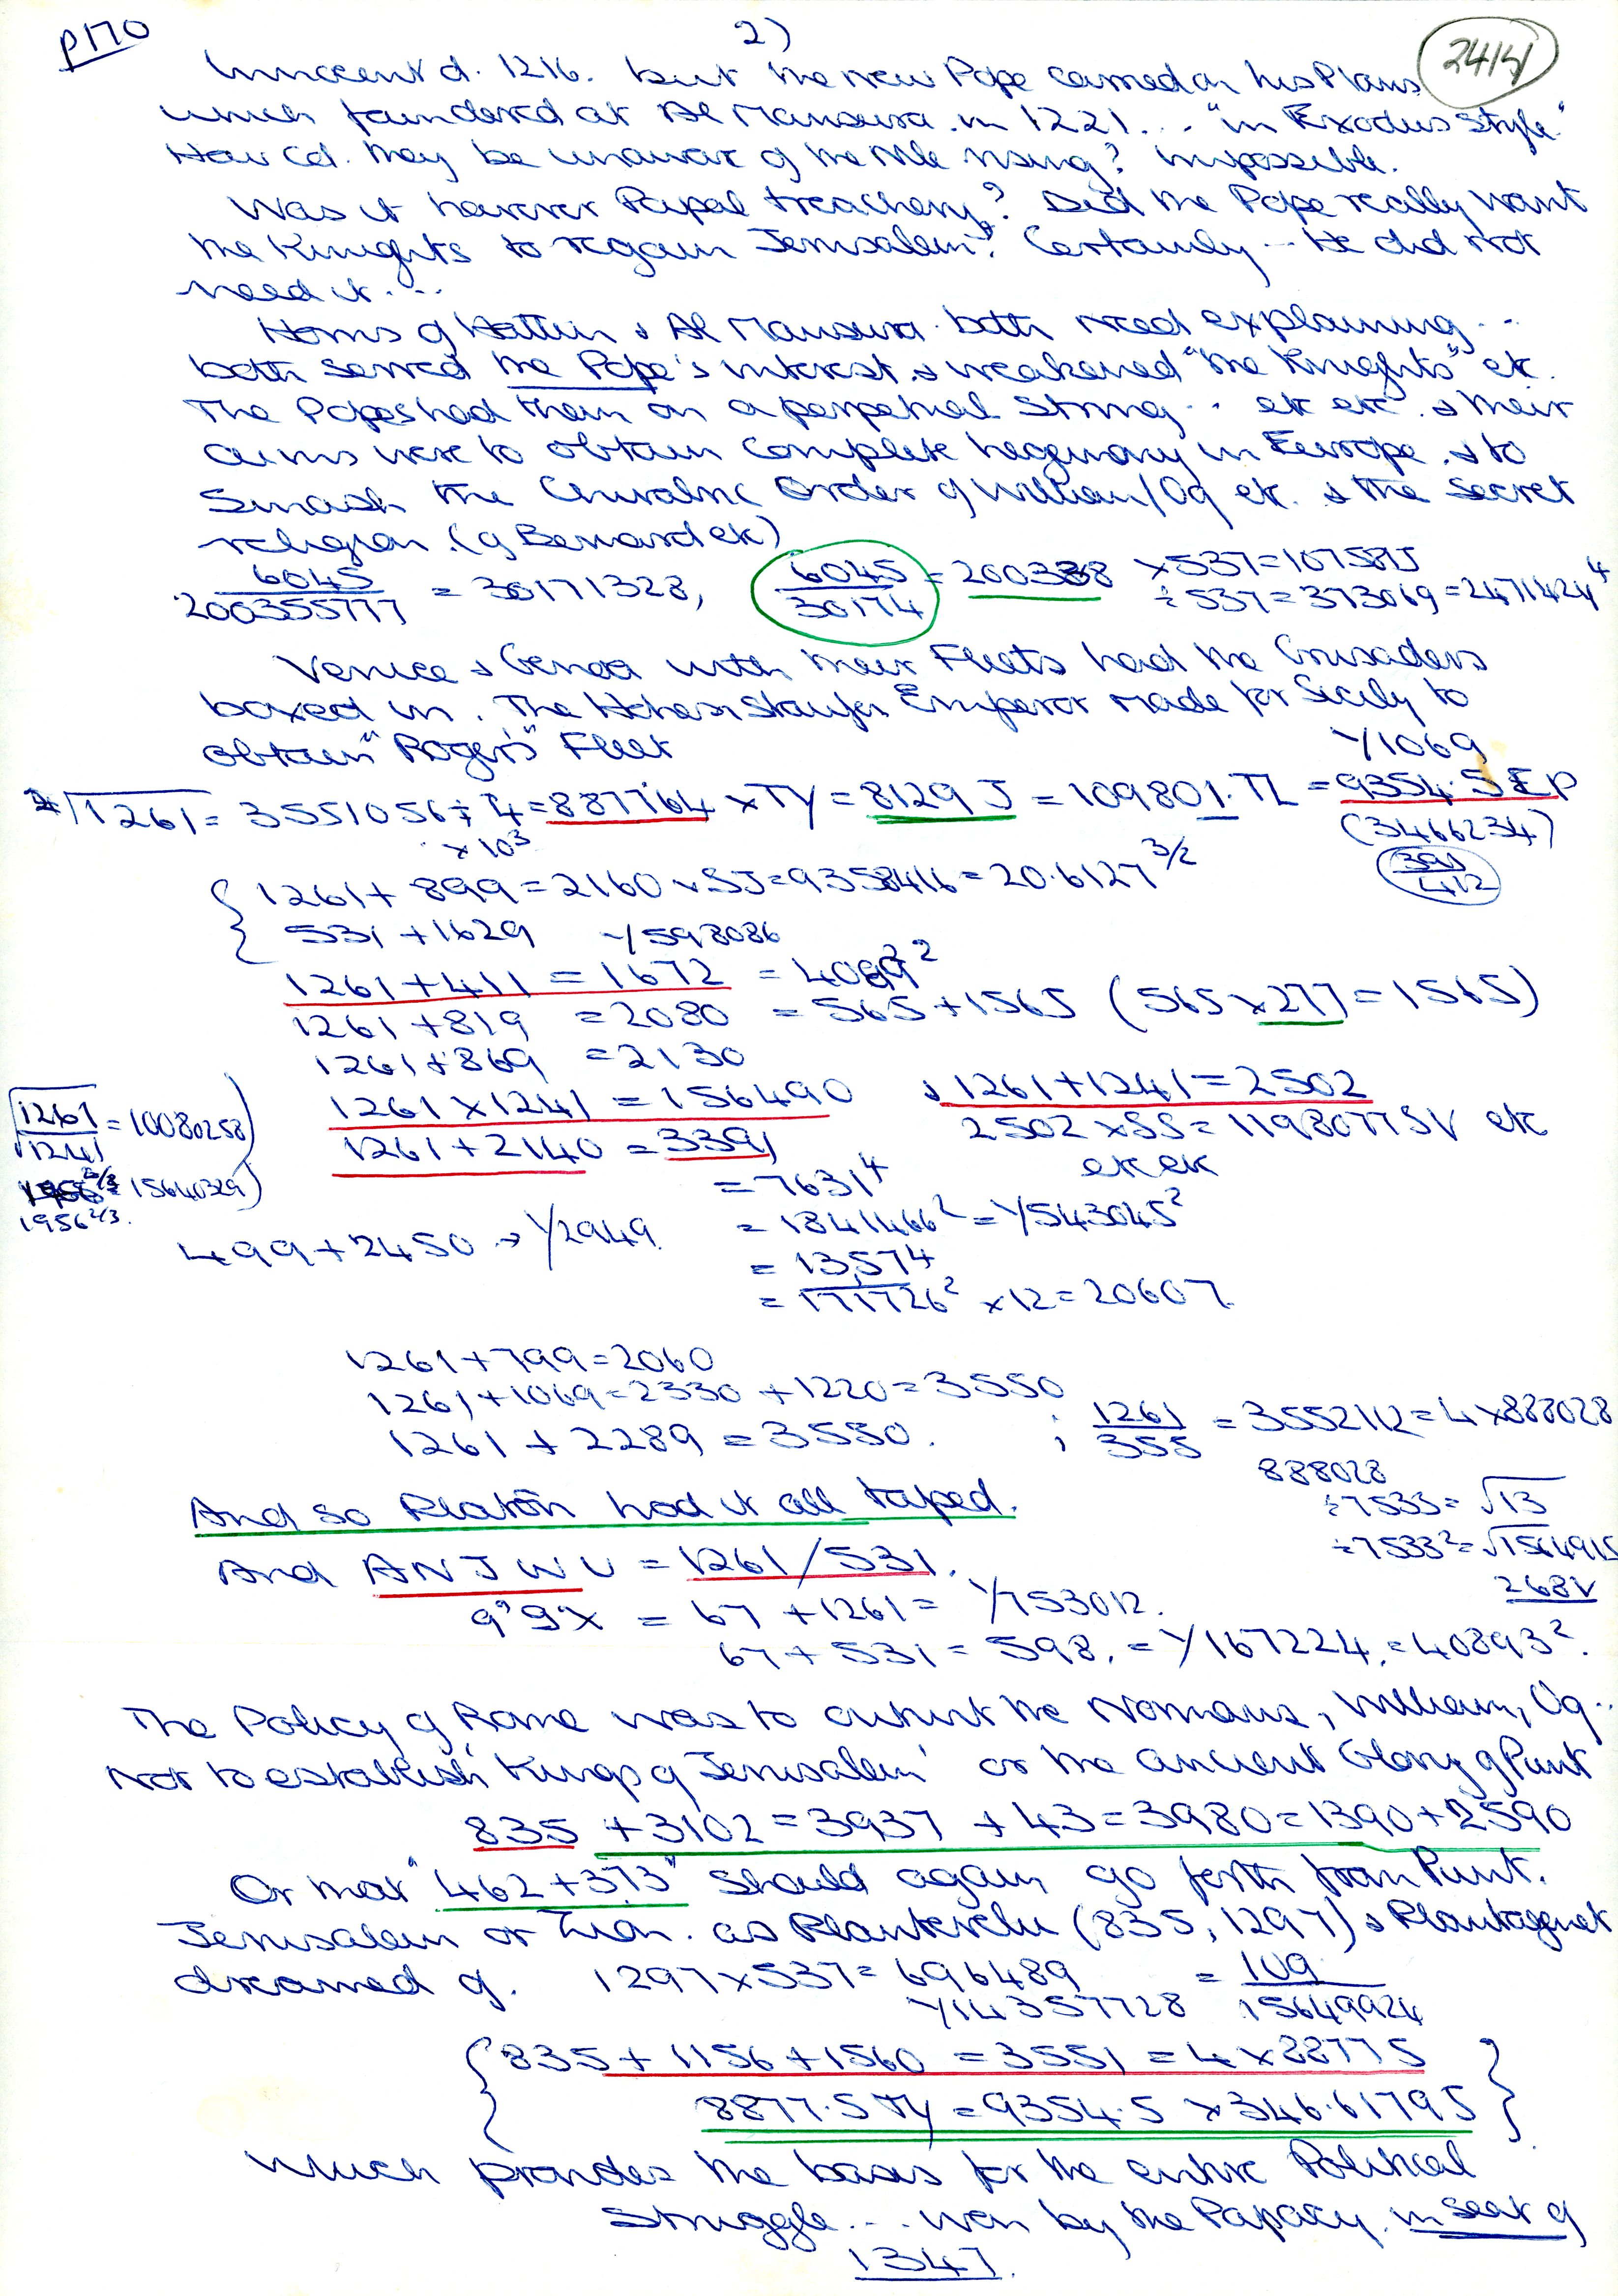 p170
2)
2414
Innocent d. 1216. but the new Pope carried on his Plans
which foundered at Al Mansura in 1221... "in Exodus style"
How cd. they be unaware of the Nile rising? impossible.
Was it however Papal treachery? Did the Pope really want
the Knights to regain Jerusalem? Certainly -- He did not
need it...
Horns of Hattin & Al Mansura both need explaining...
both served the Pope's interest & weakened "the Knights" etc.
The Popes had them on a perpetual string.. etc etc. & their
aims were to obtain complete hegemony in Europe, & to
smash the Chivalric Order of William/Og etc. & the secret
religion. (of Bernard etc)
6045/200355777 = 30171328, 6045/30174 = 200338 × 537 = 107581J
÷ 537 = 373069 = 2471424⁴
Venice & Genoa with their Fleets had the Crusaders
boxed in. The Hohenstaufen Emperor made for Sicily to
obtain "Roger's" Fleet
Y1069
√1261 = 3551056 ÷ 4 = 887764 × TY = 8129 J = 109801. TL = 9354.5 EP
× 10³
(3466234)
391/412
1261 + 899 = 2160 × SJ = 9358416 = 20.6127 3/2
531 + 1629 Y598086
1261 + 411 = 1672 = 4089²
1261 + 819 = 2080 = 565 + 1565 (565 × 277 = 1565)
1261 + 869 = 2130
1261 × 1241 = 156490 & 1261 + 1241 = 2502
√1261/√1241 = 10080258)
1261 + 2140 = 3391 2502 × SS = 1198077 SV etc
etc etc
15640329)
1956 2/3.
= 7631⁴
= 1841466² = Y543045²
499 + 2450 → Y2949.
= 13,574
= 171726² × 12 = 20607.
1261 + 799 = 2060
1261 + 1069 = 2330 + 1220 = 3550
1261 + 2289 = 3550. ; 1261/355 = 3552112 = 4 × 888028
888028
÷ 7533 = √13
÷ 7533² = √1564915
268V
And so Platōn had it all taped.
And ANJWU = 1261/531.
9"9"X = 67 + 1261 = Y753012.
67 + 531 = 598. = Y167224. = 40893².
The Policy of Rome was to outwit the Normans, William, Og..
Not to establish 'Kings of Jerusalem' or the ancient Glory of Punt
835 + 3102 = 3937 + 43 = 3980 = 1390 + 2590
Or that "462 + 373" should again go forth from Punt.
Jerusalem or Zion. as Plantevelu (835, 1297) & Plantagenet
dreamed of. 1297 × 537 = 696489 = 109/15649924
Y14357728
835 + 1156 + 1560 = 3551 = 4 × 88775
8877.5 TY = 9354.5 × 346.61795
Which provides the basis for the entire Political
Struggle... won by the Papacy. in Sext of
1347.